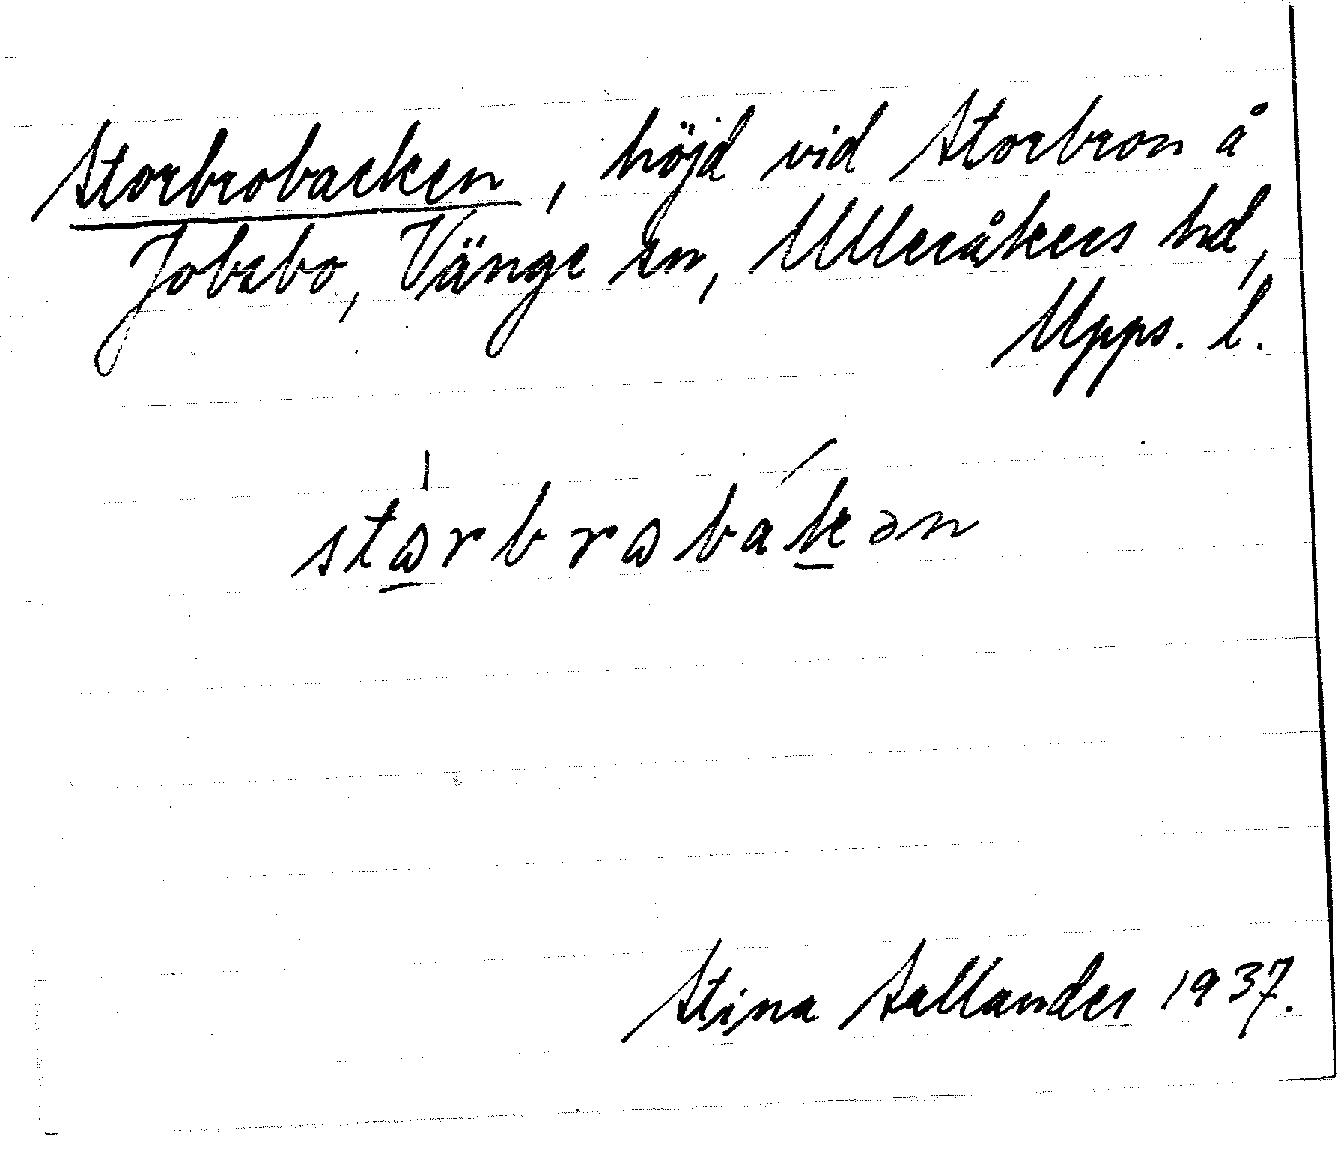 Storbrobacken, höjd vid Storbron å
Jobsbo, Vänge sn, Ulleråkers hd,
Upps. l.
stɷrbrɷbakən
Stina Sellander 1937.